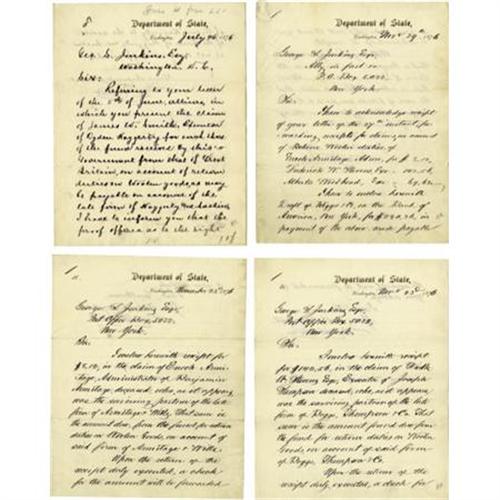 8
Department of State,
Washington, July 26 1876
Geo. L. Jenkins, Esq.
Washington, D.C.
Sir:
Referring to your letter
of the 5th of June, ultimo, in
which you present the claim
of James W. Smith, Executor of
Ogden Haggerty for
of the fund received by this
Government from that of Great
Britain, on account of return
duties on Woolen goods as may
be payable on account of the
late firm of Haggerty
I have to inform you that the
proof offered as to the right
1
Department of State,
Washington, Nov 29th 1876
George L. Jenkins Esqr.
Atty in fact &c
P.O. Box 5022
New York
Sir:
I have to acknowledge receipt
of your letter of the 27th instant, for-
warding receipts for claims, on account
of Return Woolen duties, of
Enoch Armitage, Admr, for $2.10,
I have to enclose herewith
Draft of Riggs & Co. on the Bank of
America, New York, for
payment of the above, made payable
Department of State,
Washington, November 23rd 1876
George L. Jenkins Esqr.
Post Office Box 5022,
New York.
Sir:
I enclose herewith receipt for
$2.10, in the claim of Enoch Armi-
tage, Administrator of Benjamin
Armitage, deceased, who, as it appears,
was the surviving partner of the late
firm of Armitage & Wells. That sum is
the amount due, from the fund for return
duties on Woolen Goods, on account of
said firm of Armitage & Wells.
Upon the return of the
receipt duly executed, a check
for the amount will be forwarded
1
Department of State,
Washington, Nov. 23d 1876
George L. Jenkins Esqr.
Post Office Box 5022,
New York.
Sir:
I enclose herewith receipt
for $100.56, in the claim of
Executor of Joseph
Thompson deceased, who, as it appears
was the surviving partner of the late
firm of Riggs, Thompson & Co. That
sum is the amount found due from
the fund for return duties on Woolen
Goods, on account of said firm
of Riggs, Thompson & Co.
Upon the return of the
receipt duly executed, a check for